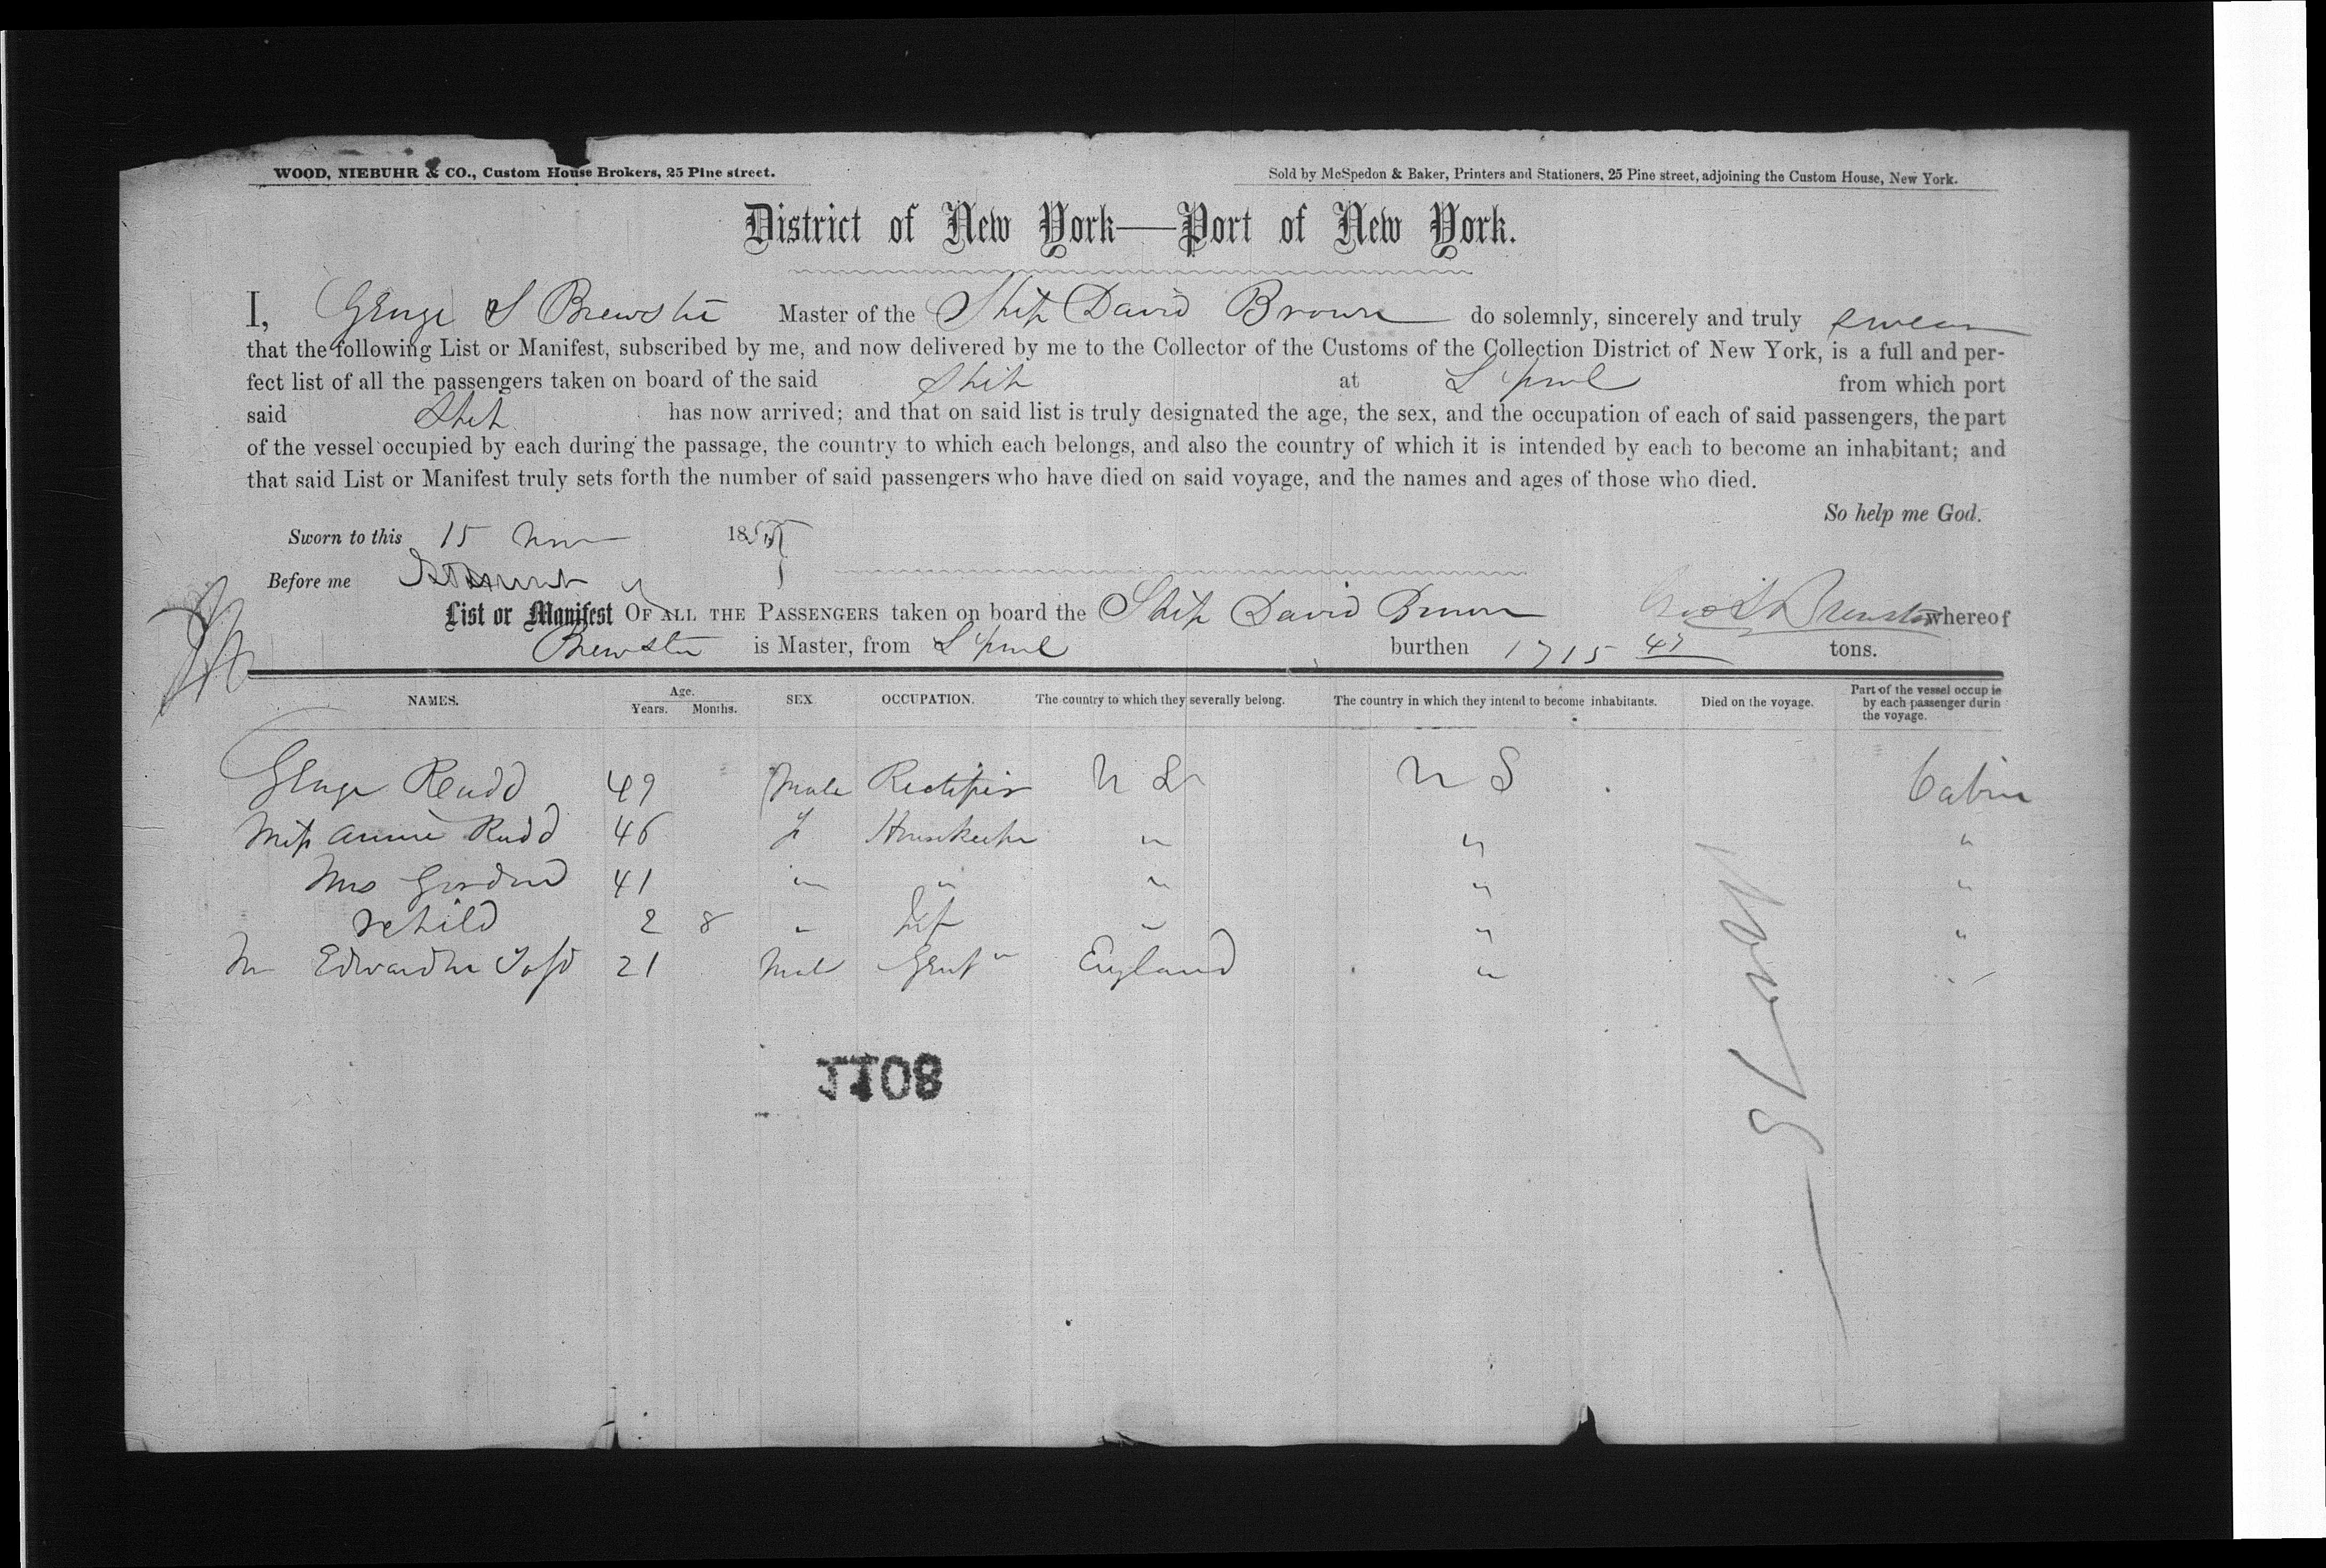 WOOD, NIEBUHR & CO., Custom House Brokers, 25 Pine street.
Sold by McSpedon & Baker, Printers and Stationers, 25 Pine street, adjoining the Custom House, New York.
District of New York—Port of New York.
I, George S Brewster Master of the Ship David Brown do solemnly, sincerely and truly swear
that the following List or Manifest, subscribed by me, and now delivered by me to the Collector of the Customs of the Collection District of New York, is a full and per-
fect list of all the passengers taken on board of the said Ship at L'pool from which port
said Ship has now arrived; and that on said list is truly designated the age, the sex, and the occupation of each of said passengers, the part
of the vessel occupied by each during the passage, the country to which each belongs, and also the country of which it is intended by each to become an inhabitant; and
that said List or Manifest truly sets forth the number of said passengers who have died on said voyage, and the names and ages of those who died.
So help me God.
Sworn to this 15 Nov 185
Before me
Geo S Brewster
List or Manifest OF ALL THE PASSENGERS taken on board the Ship David Brown whereof
Brewster is Master, from L'pool burthen 1715 47 tons.
NAMES. Age. Years. Months. SEX OCCUPATION. The country to which they severally belong. The country in which they intend to become inhabitants. Died on the voyage. Part of the vessel occupie by each passenger durin the voyage.
George Rudd 49 Male Rectifier U S U S Cabin
Miss Annie Rudd 46 f Housekeeper " " "
Mrs Gordon 41 " " " " "
child 2 8 " " " "
Mr 21 Male Gent England " "
1108